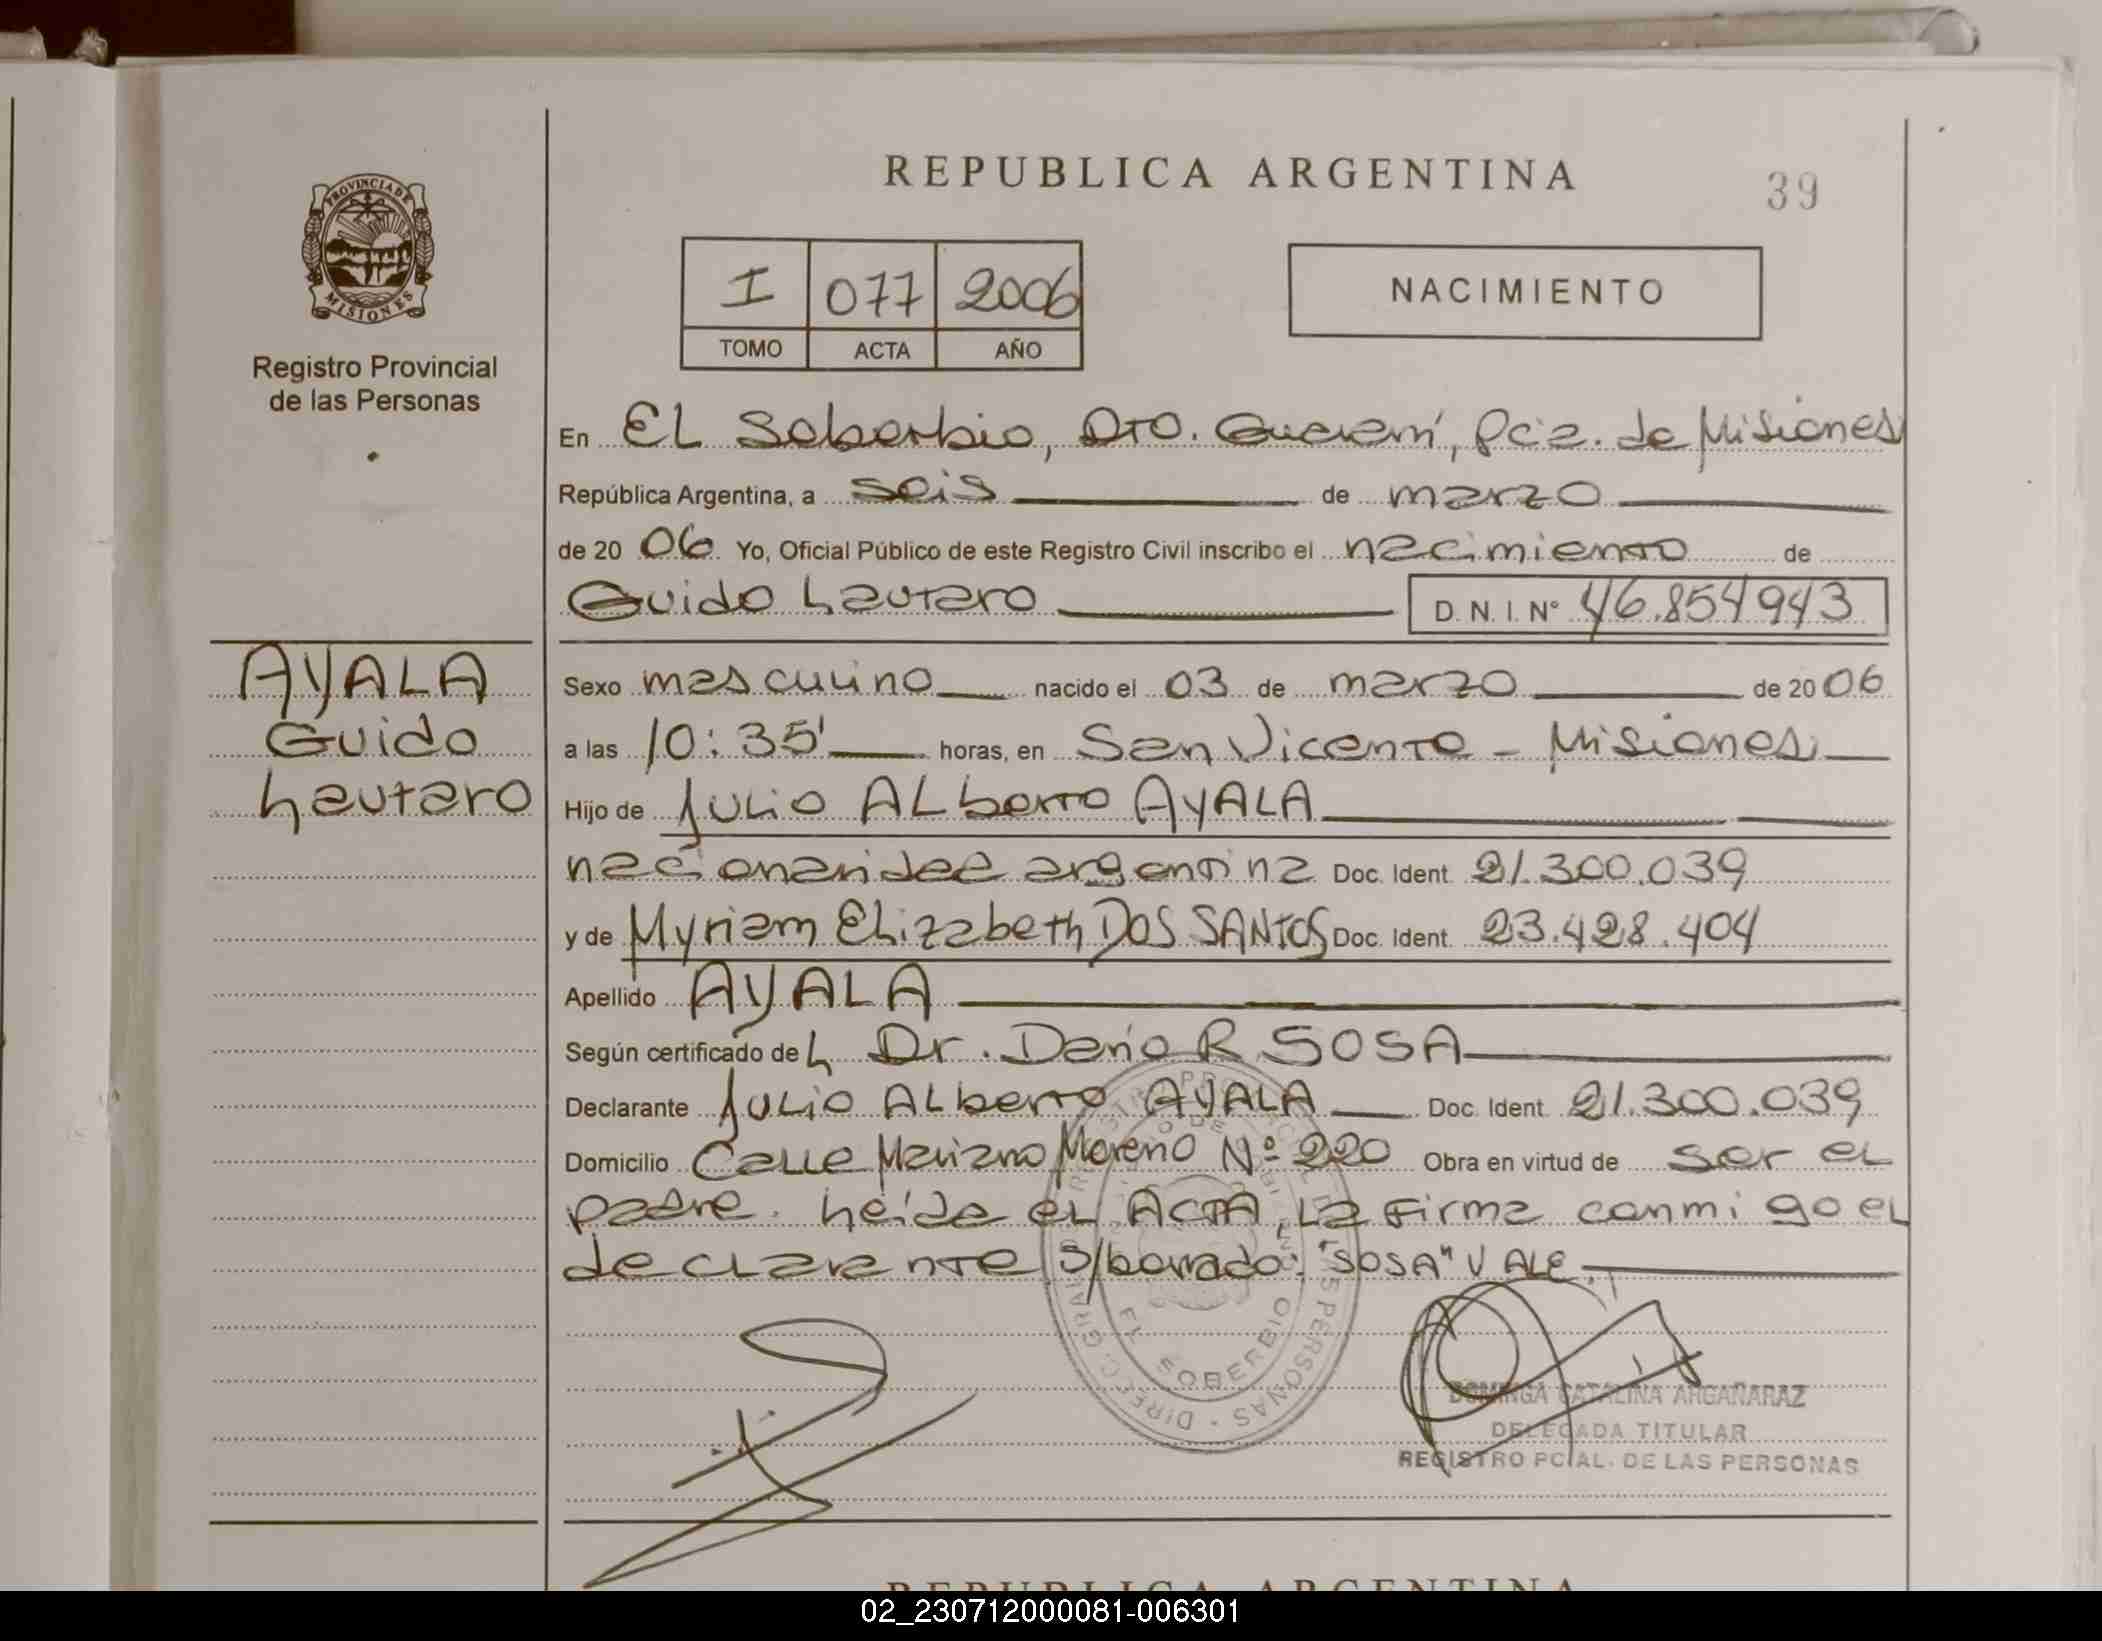 REPUBLICA ARGENTINA
39
PROVINCIA DE MISIONES
Registro Provincial
de las Personas
I 077 2006
TOMO ACTA AÑO
NACIMIENTO
En EL Soberbio, Dto. Guaraní, Pcia. de Misiones
República Argentina, a seis de marzo
de 20 06 Yo, Oficial Público de este Registro Civil inscribo el nacimiento de
Guido Lautaro D. N. I. Nº 46.854943
AYALA
Guido
Lautaro
Sexo masculino nacido el 03 de marzo de 20 06
a las 10:35' horas, en San Vicente - Misiones
Hijo de Julio ALberto AYALA
nacionalidad argentina Doc. Ident. 21.300.039
y de Myriam Elizabeth DOS SANTOS Doc. Ident. 23.428.404
Apellido AYALA
Según certificado del Dr. Darío R SOSA
Declarante Julio ALberto AYALA Doc. Ident. 21.300.039
Domicilio Calle Mariano Moreno Nº 220 Obra en virtud de ser el
padre. Leída el ACTA, la firma conmigo el
declarante S/borrado: "SOSA" VALE.
EL SOBERBIO
DOMINGA CATALINA ARGAÑARAZ
DELEGADA TITULAR
REGISTRO PCIAL. DE LAS PERSONAS
REPUBLICA ARGENTINA
02_230712000081-006301